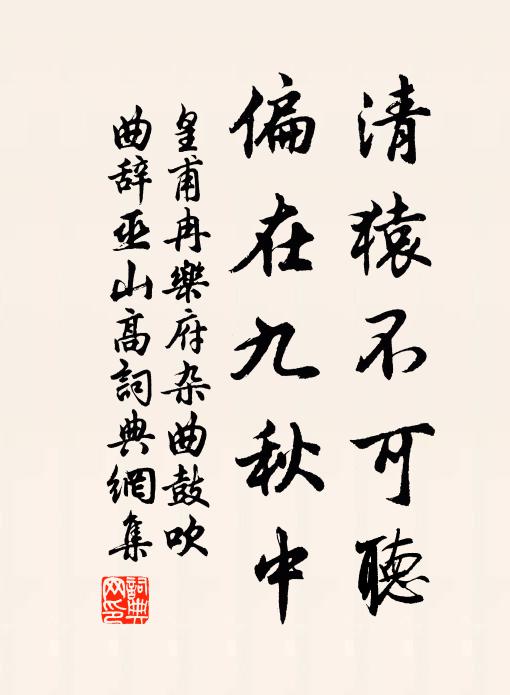 清猿不可聽
偏在九秋中
皇甫冉樂府杂曲鼓吹
曲辞巫山高詞典網集
詞典网印